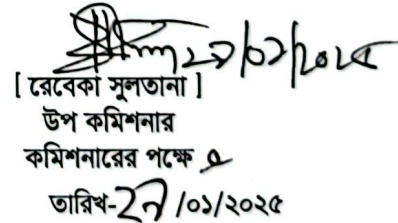 ২৯/০১/২০২৫
[ রেবেকা সুলতানা ]
উপ কমিশনার
কমিশনারের পক্ষে
তারিখ-২৯ /০১/২০২৫